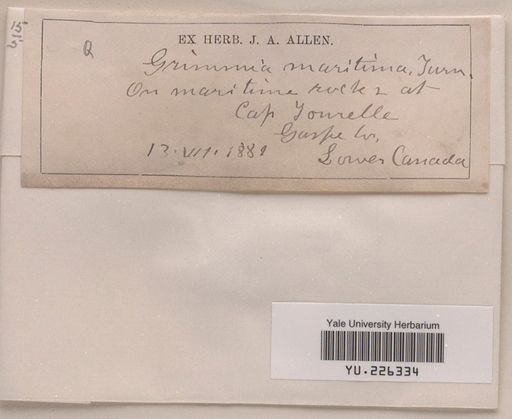 15
5
Q
EX HERB. J. A. ALLEN.
Grimmia maritima, Turn.
On maritime rocks at
Cap Tourelle
Gaspe Co,
13. VII. 1881
Lower Canada
Yale University Herbarium
YU.226334